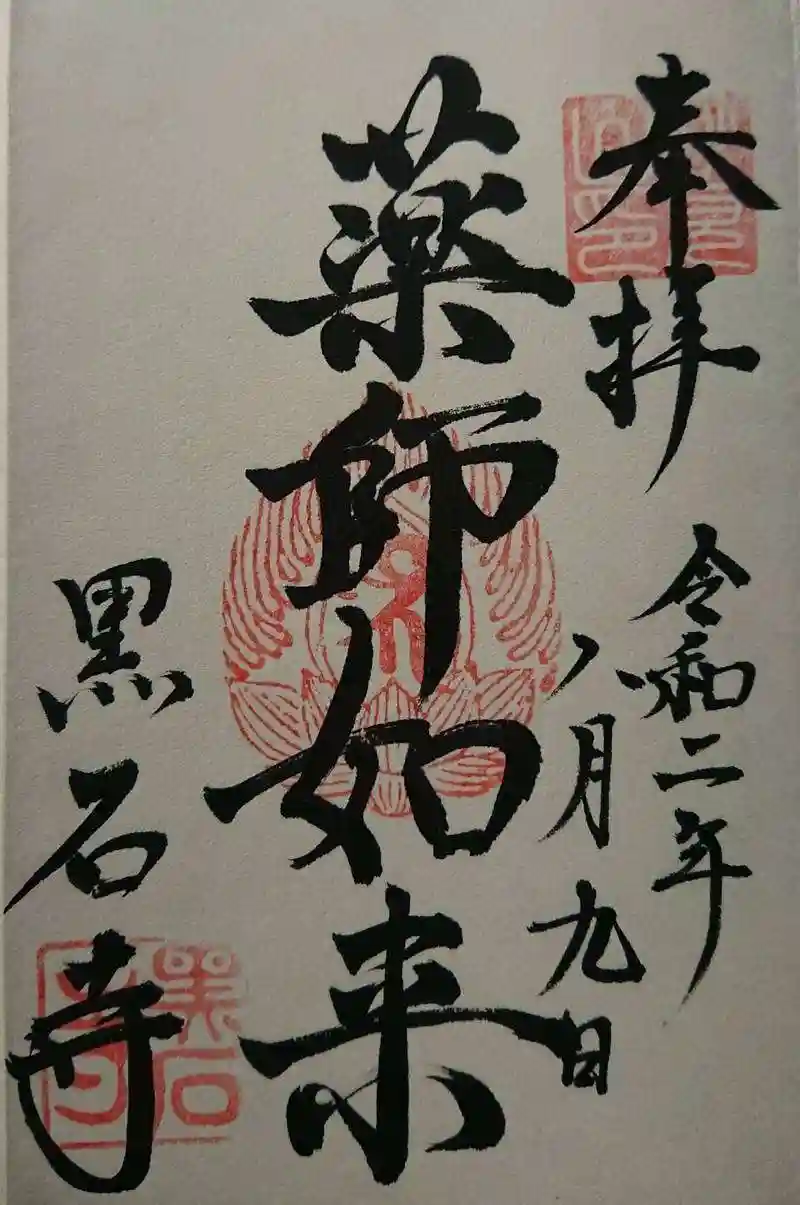 奉拝
令和二年
八月九日
薬師如来
黒石寺
黒石